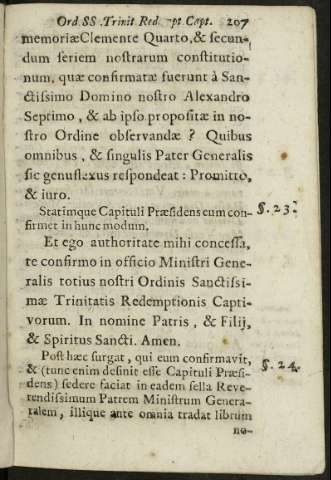 Ord SS .Trinit Red. pt Capt. 207
memoriæ Clemente Quarto, & secun-
dum seriem nostrarum constitutio-
num, quæ confirmatæ fuerunt à San-
ctissimo Domino nostro Alexandro
Septimo , & ab ipso propositæ in no-
stro Ordine observandæ ? Quibus
omnibus , & singulis Pater Generalis
sic genuflexus respondeat : Promitto,
& iuro.
Statimque Capituli Præsidens eum con-
firmet in hunc modum. §. 23.
Et ego authoritate mihi concessa,
te confirmo in officio Ministri Gene-
ralis totius nostri Ordinis Sanctissi-
mæ Trinitatis Redemptionis Capti-
vorum. In nomine Patris , & Filij,
& Spiritus Sancti. Amen.
Post hæc surgat , qui eum confirmavit,
& (tunc enim desinit esse Capituli Præsi- §. 24.
dens) sedere faciat in eadem sella Reve-
rendissimum Patrem Ministrum Genera-
ralem , illique ante omnia tradat librum
no-